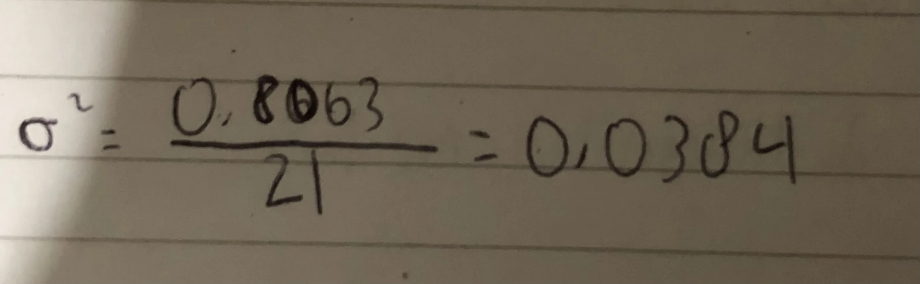 σ² = 0,8063 / 21 = 0,0384